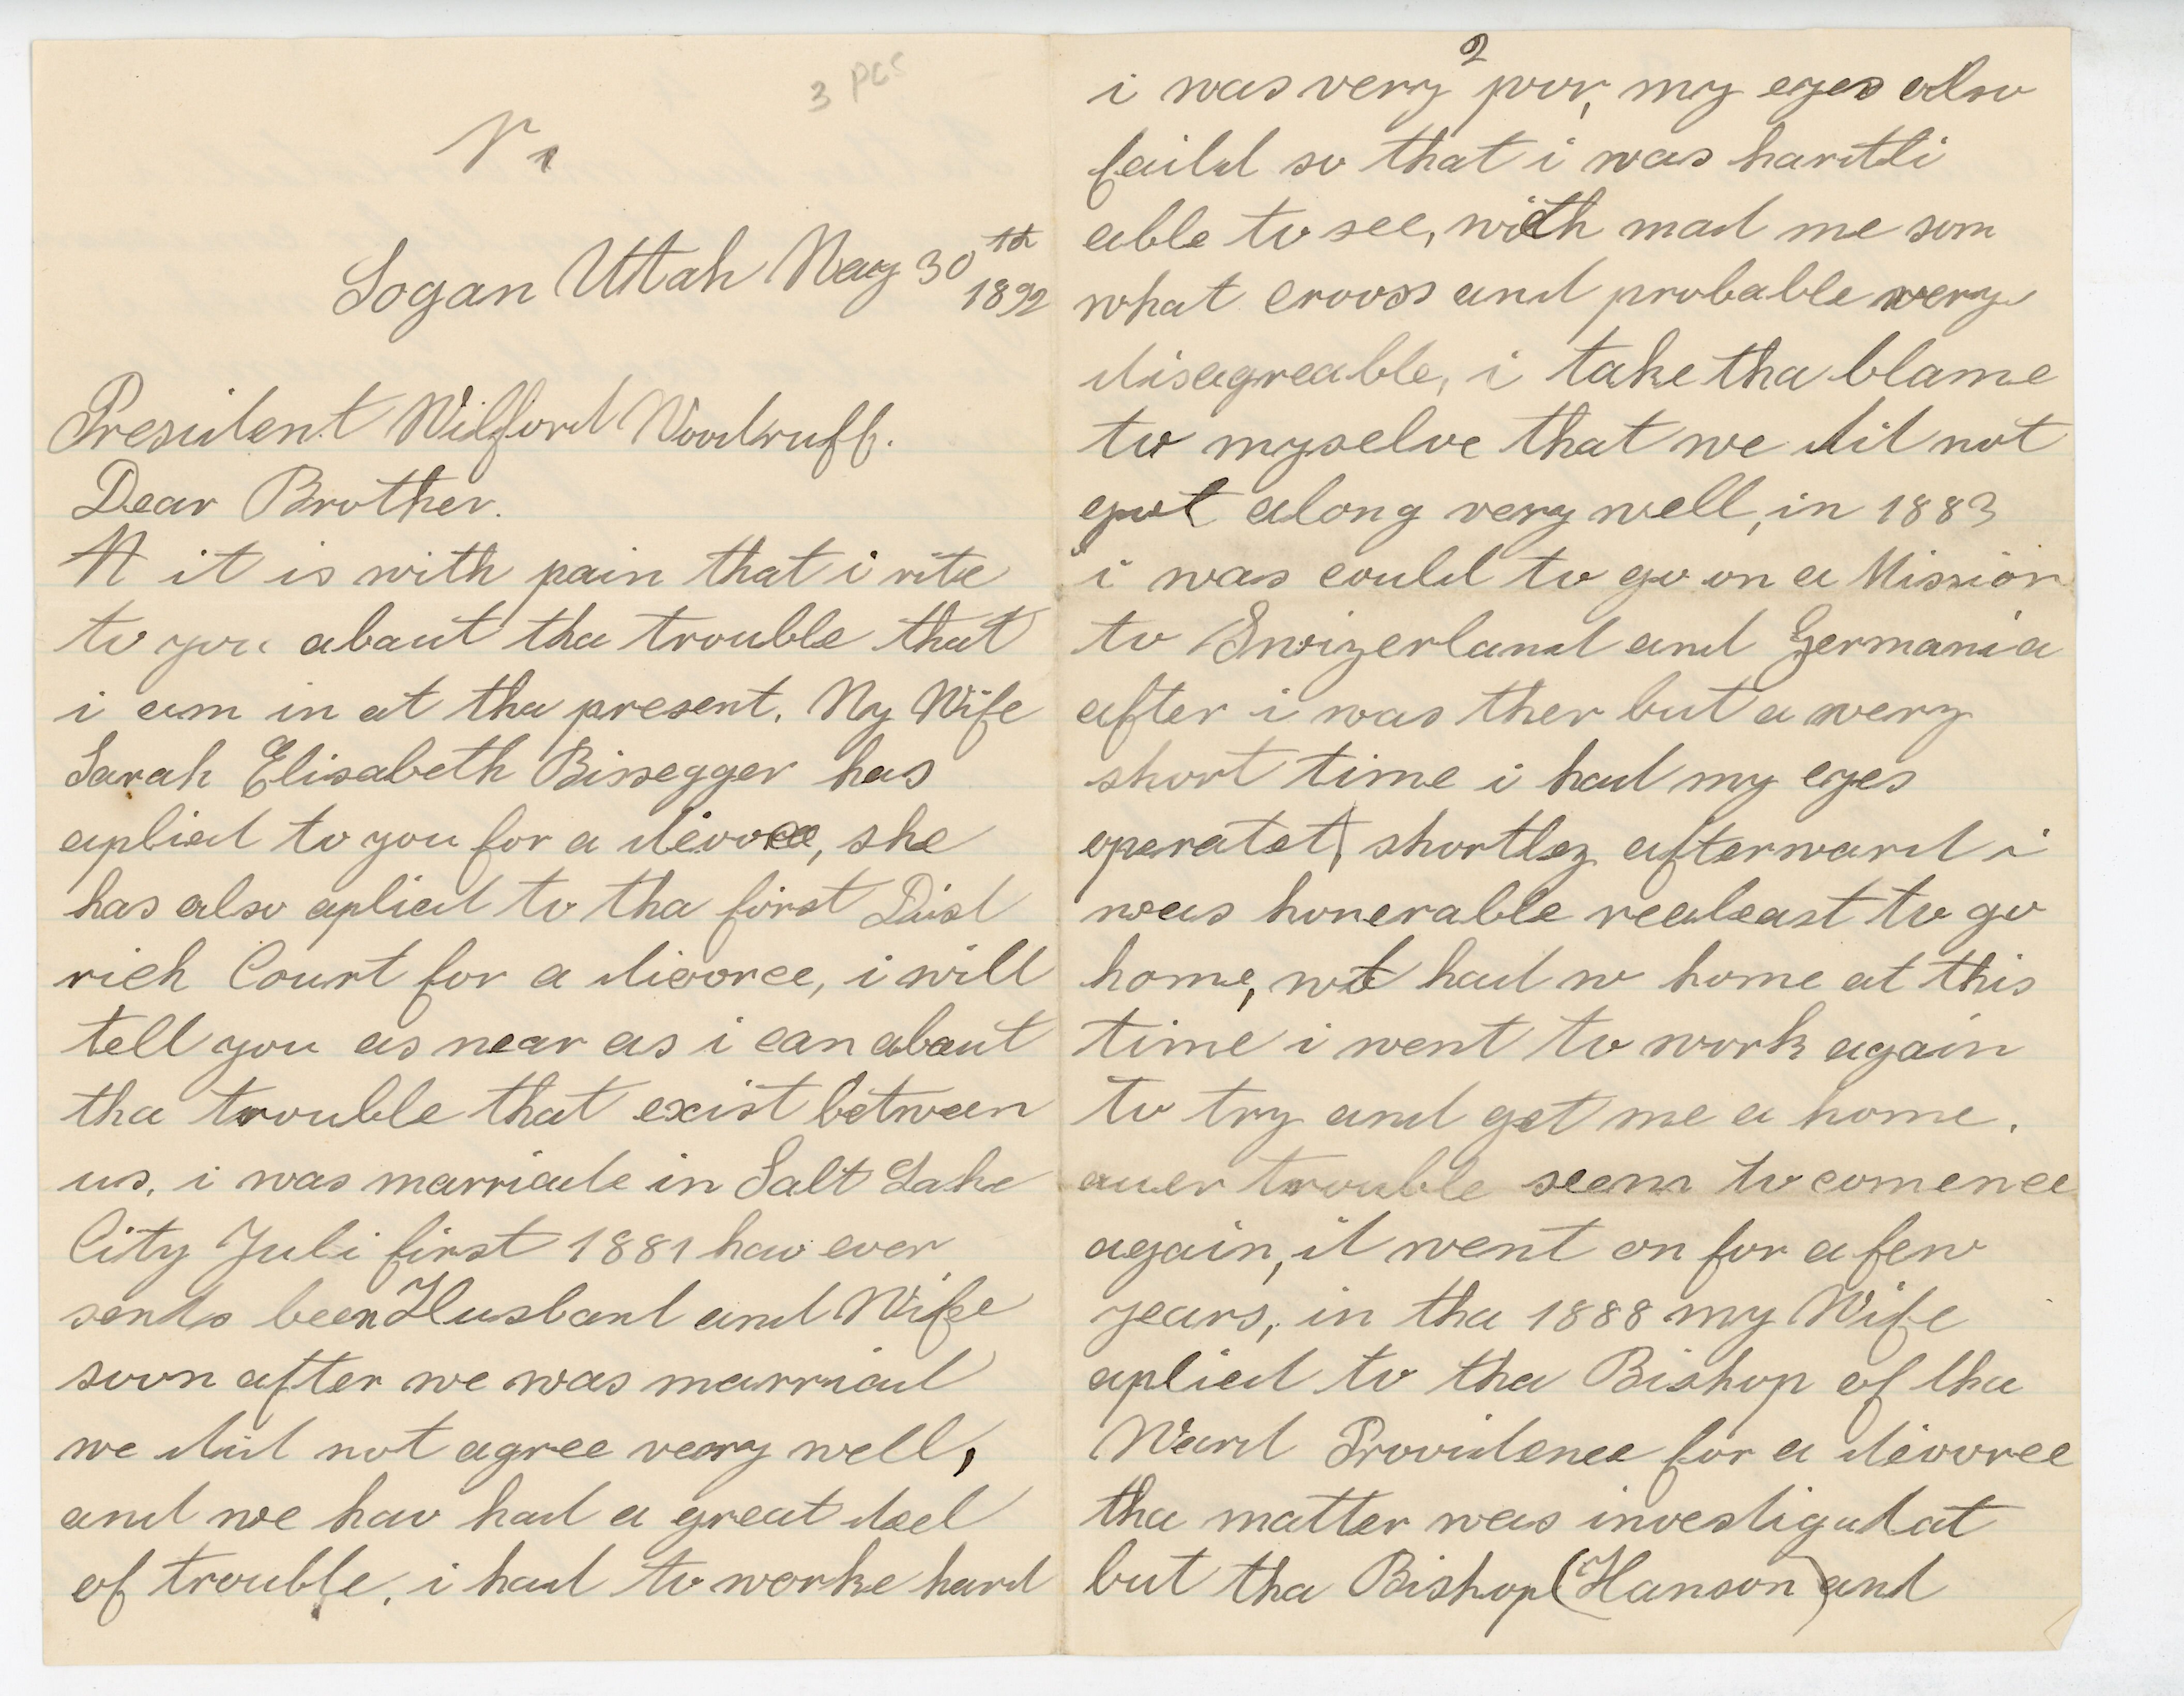 3 pgs
N 1
Logan Uttah May 30th
1892
President Wilford Woodruff.
Dear Brother.
it is with pain that i rite
to you abaut tha trouble that
i am in at tha present. My Wife
Sarah Elisabeth Bissegger has
aplied to you for a devorce, she
has also aplied to tha first Dist
rich Court for a divorce, i will
tell you as near as i can abaut
tha trouble that exist between
us. i was marriade in Salt Lake
City Juli first 1881 hav ever
sents been Husband and Wife
soon after we was marriad
we did not agree very well,
and we hav had a great deel
of trouble. i had to worke hard
2
i was very poor, my eyes also
faild so that i was hardtli
able to see, witch mad me som
what crooss and probable wery
disagreable, i take tha blame
to myselve that we dit not
got along very well, in 1883
i was could to go on a Mission
to Swizerland and Germania
after i was ther but a wery
short time i had my eyes
operatet, shortley afterward i
was honerable realeast to go
home, we had no home at this
time i went to work again
to try and get me a home.
auer trouble seem to comence
again, it went on for a few
years, in tha 1888 my Wife
aplied to tha Bishop of tha
Ward Providence for a devorce
tha matter was investigatat
but tha Bishop (Hanson) and